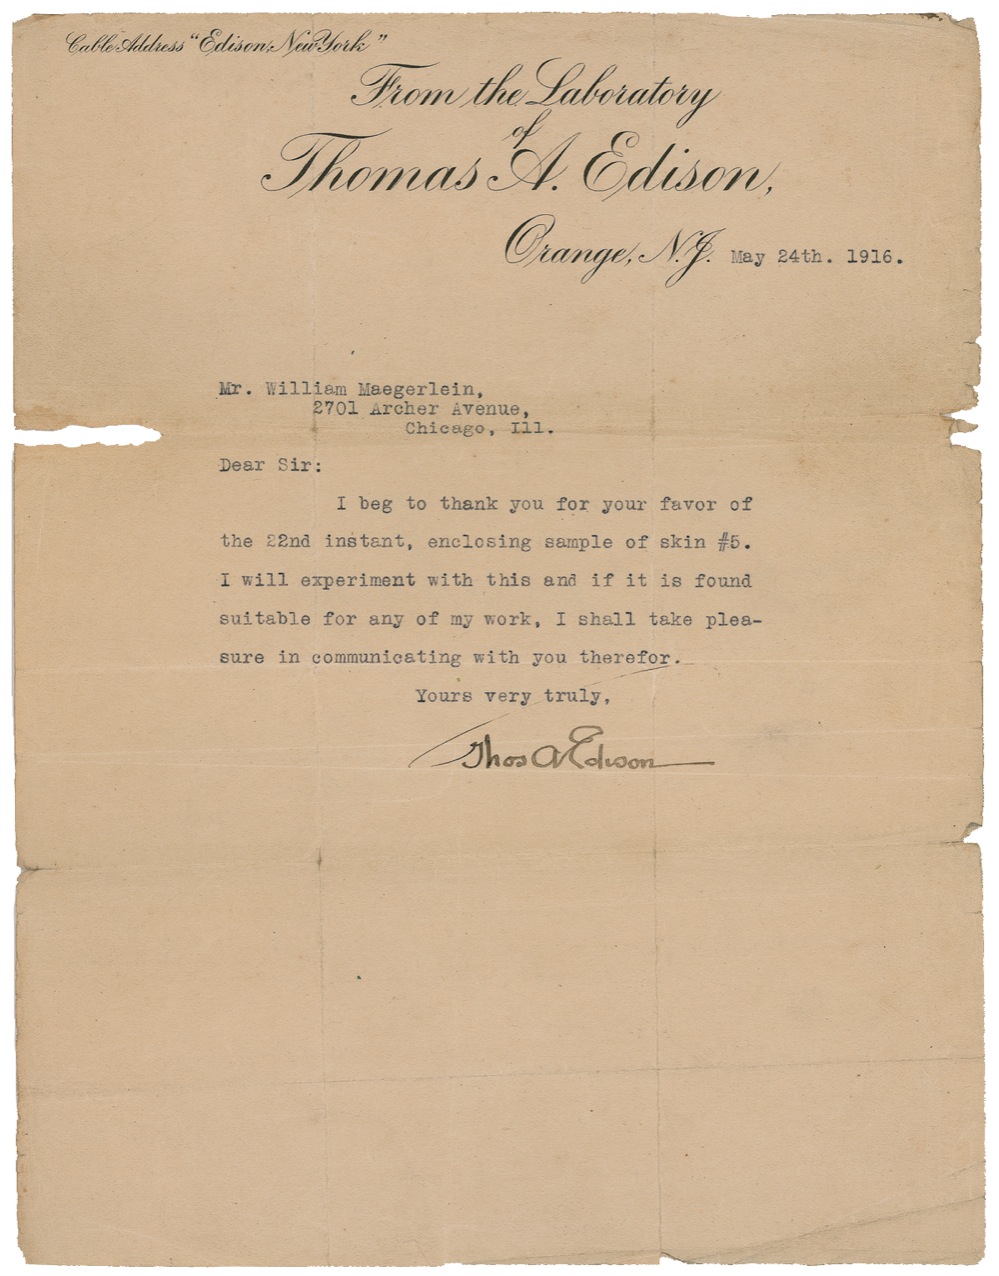 Cable Address "Edison, New York"
From the Laboratory
of
Thomas A. Edison,
Orange, N.J. May 24th. 1916.
Mr. William Maegerlein,
2701 Archer Avenue,
Chicago, Ill.
Dear Sir:
I beg to thank you for your favor of
the 22nd instant, enclosing sample of skin #5.
I will experiment with this and if it is found
suitable for any of my work, I shall take plea-
sure in communicating with you therefor.
Yours very truly,
Thos A Edison